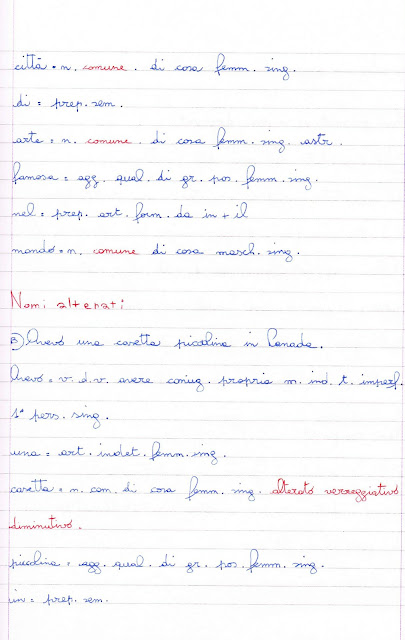 città = n. comune. di cosa femm. sing.
di = prep. sem.
arte = n. comune. di cosa femm. sing. astr.
famosa = agg. qual. di gr. pos. femm. sing.
nel = prep. art. form. da in + il
mondo = n. comune di cosa masch. sing.
Nomi alterati
B) Avevo una casetta piccolina in Canada.
Avevo = v. d. v. avere coniug. propria m. ind. t. imperf.
1ª pers. sing.
una = art. indet. femm. sing.
casetta = n. com. di cosa femm. sing. alterato vezzeggiativo
diminutivo.
piccolina = agg. qual. di gr. pos. femm. sing.
in = prep. sem.